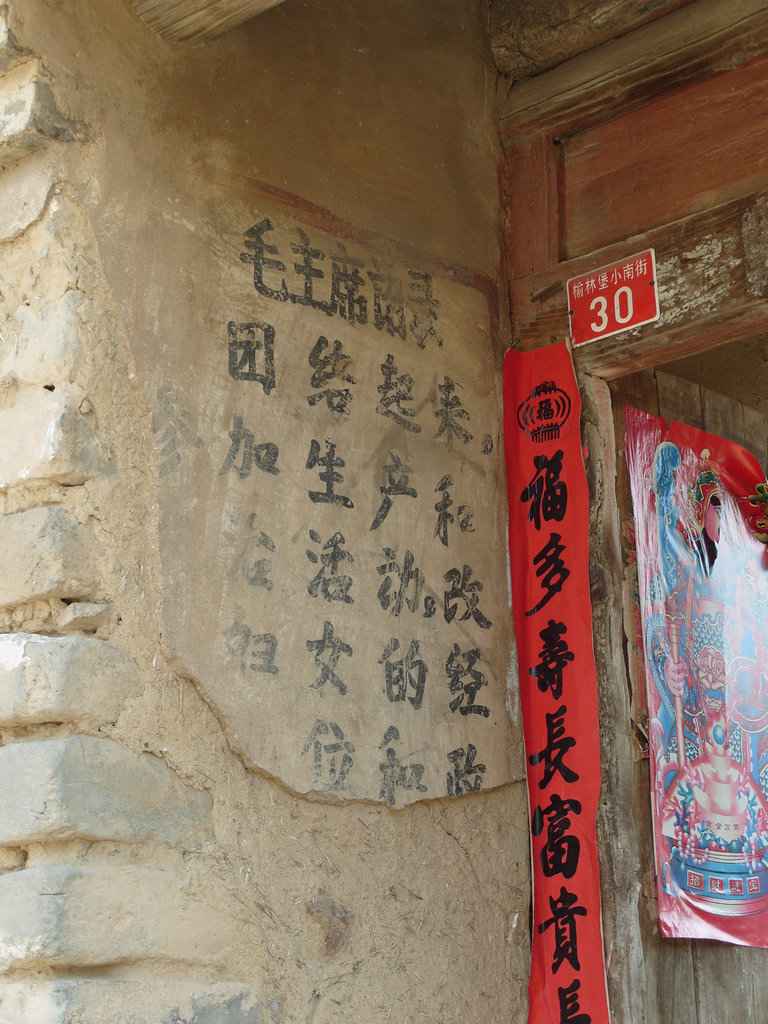 毛主席语录
团结起来，
加生产和
治活动，改
妇女的经
位和政
榆林堡小南街
30
福
福多寿長富貴長